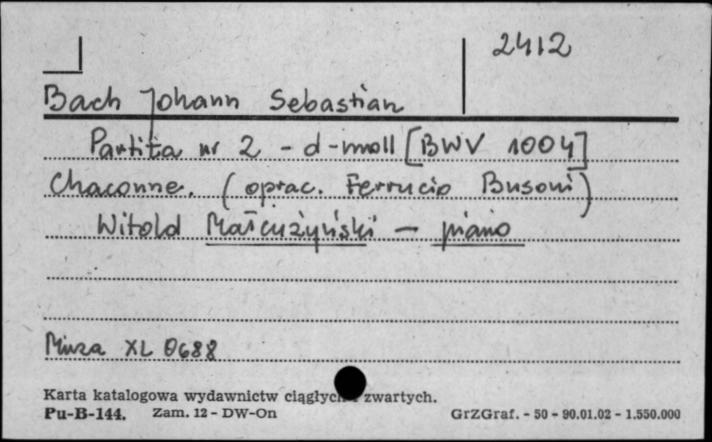 2412
Bach Johann Sebastian
Partita nr 2 - d-moll [BWV 1004]
Chaconne. (oprac. Ferrucio Busoni)
Witold Małcużyński - piano
Muza XL 0688
Karta katalogowa wydawnictw ciągłych i zwartych.
Pu-B-144. Zam. 12 - DW-On GrZGraf. - 50 - 90.01.02 - 1.550.000